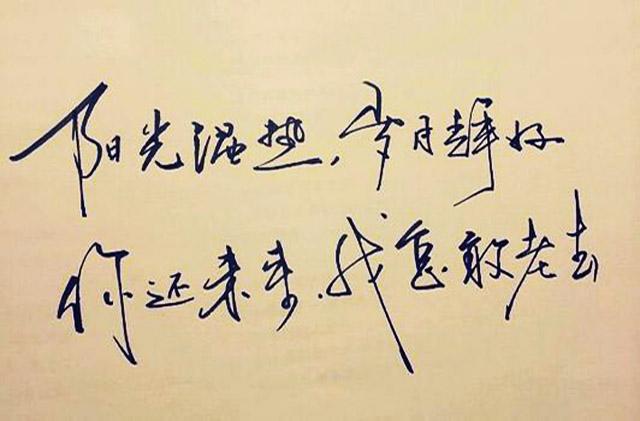 阳光温热，岁月静好
你还未来，我怎敢老去